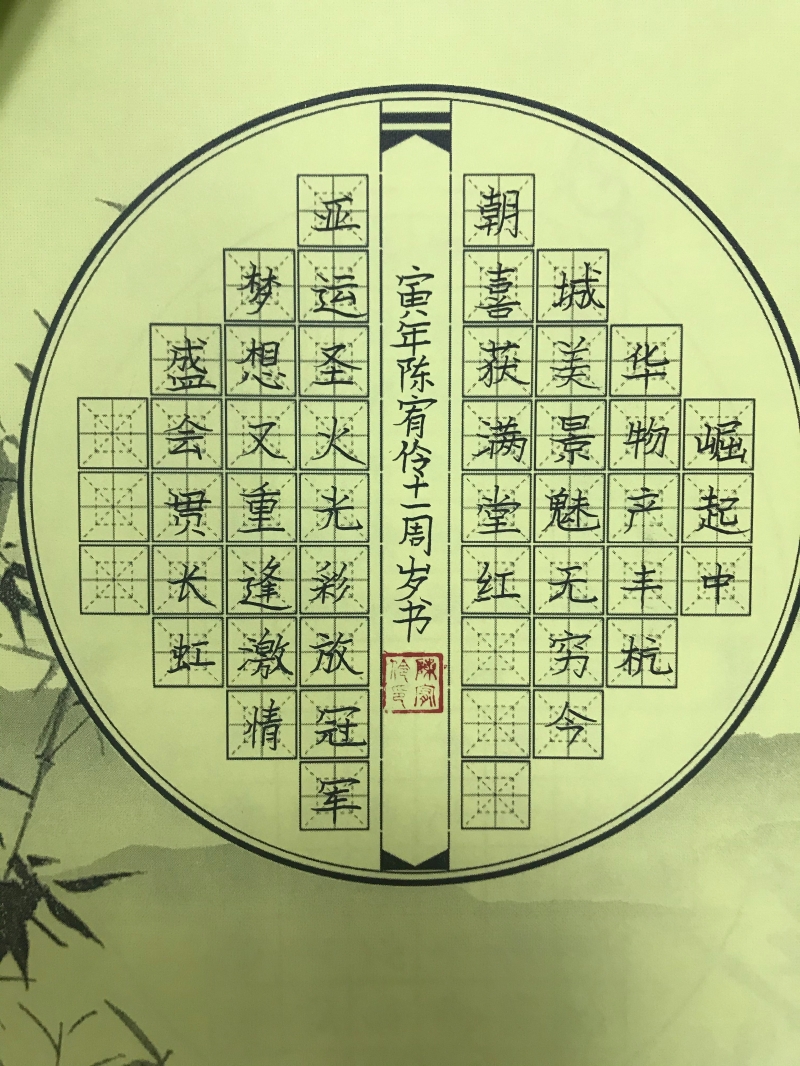 崛起中
华物产丰杭
城美景魅无穷今
朝喜获满堂红
亚运圣火光彩放冠军
梦想又重逢激情
盛会贯长虹
寅年陈宥伶十一周岁书